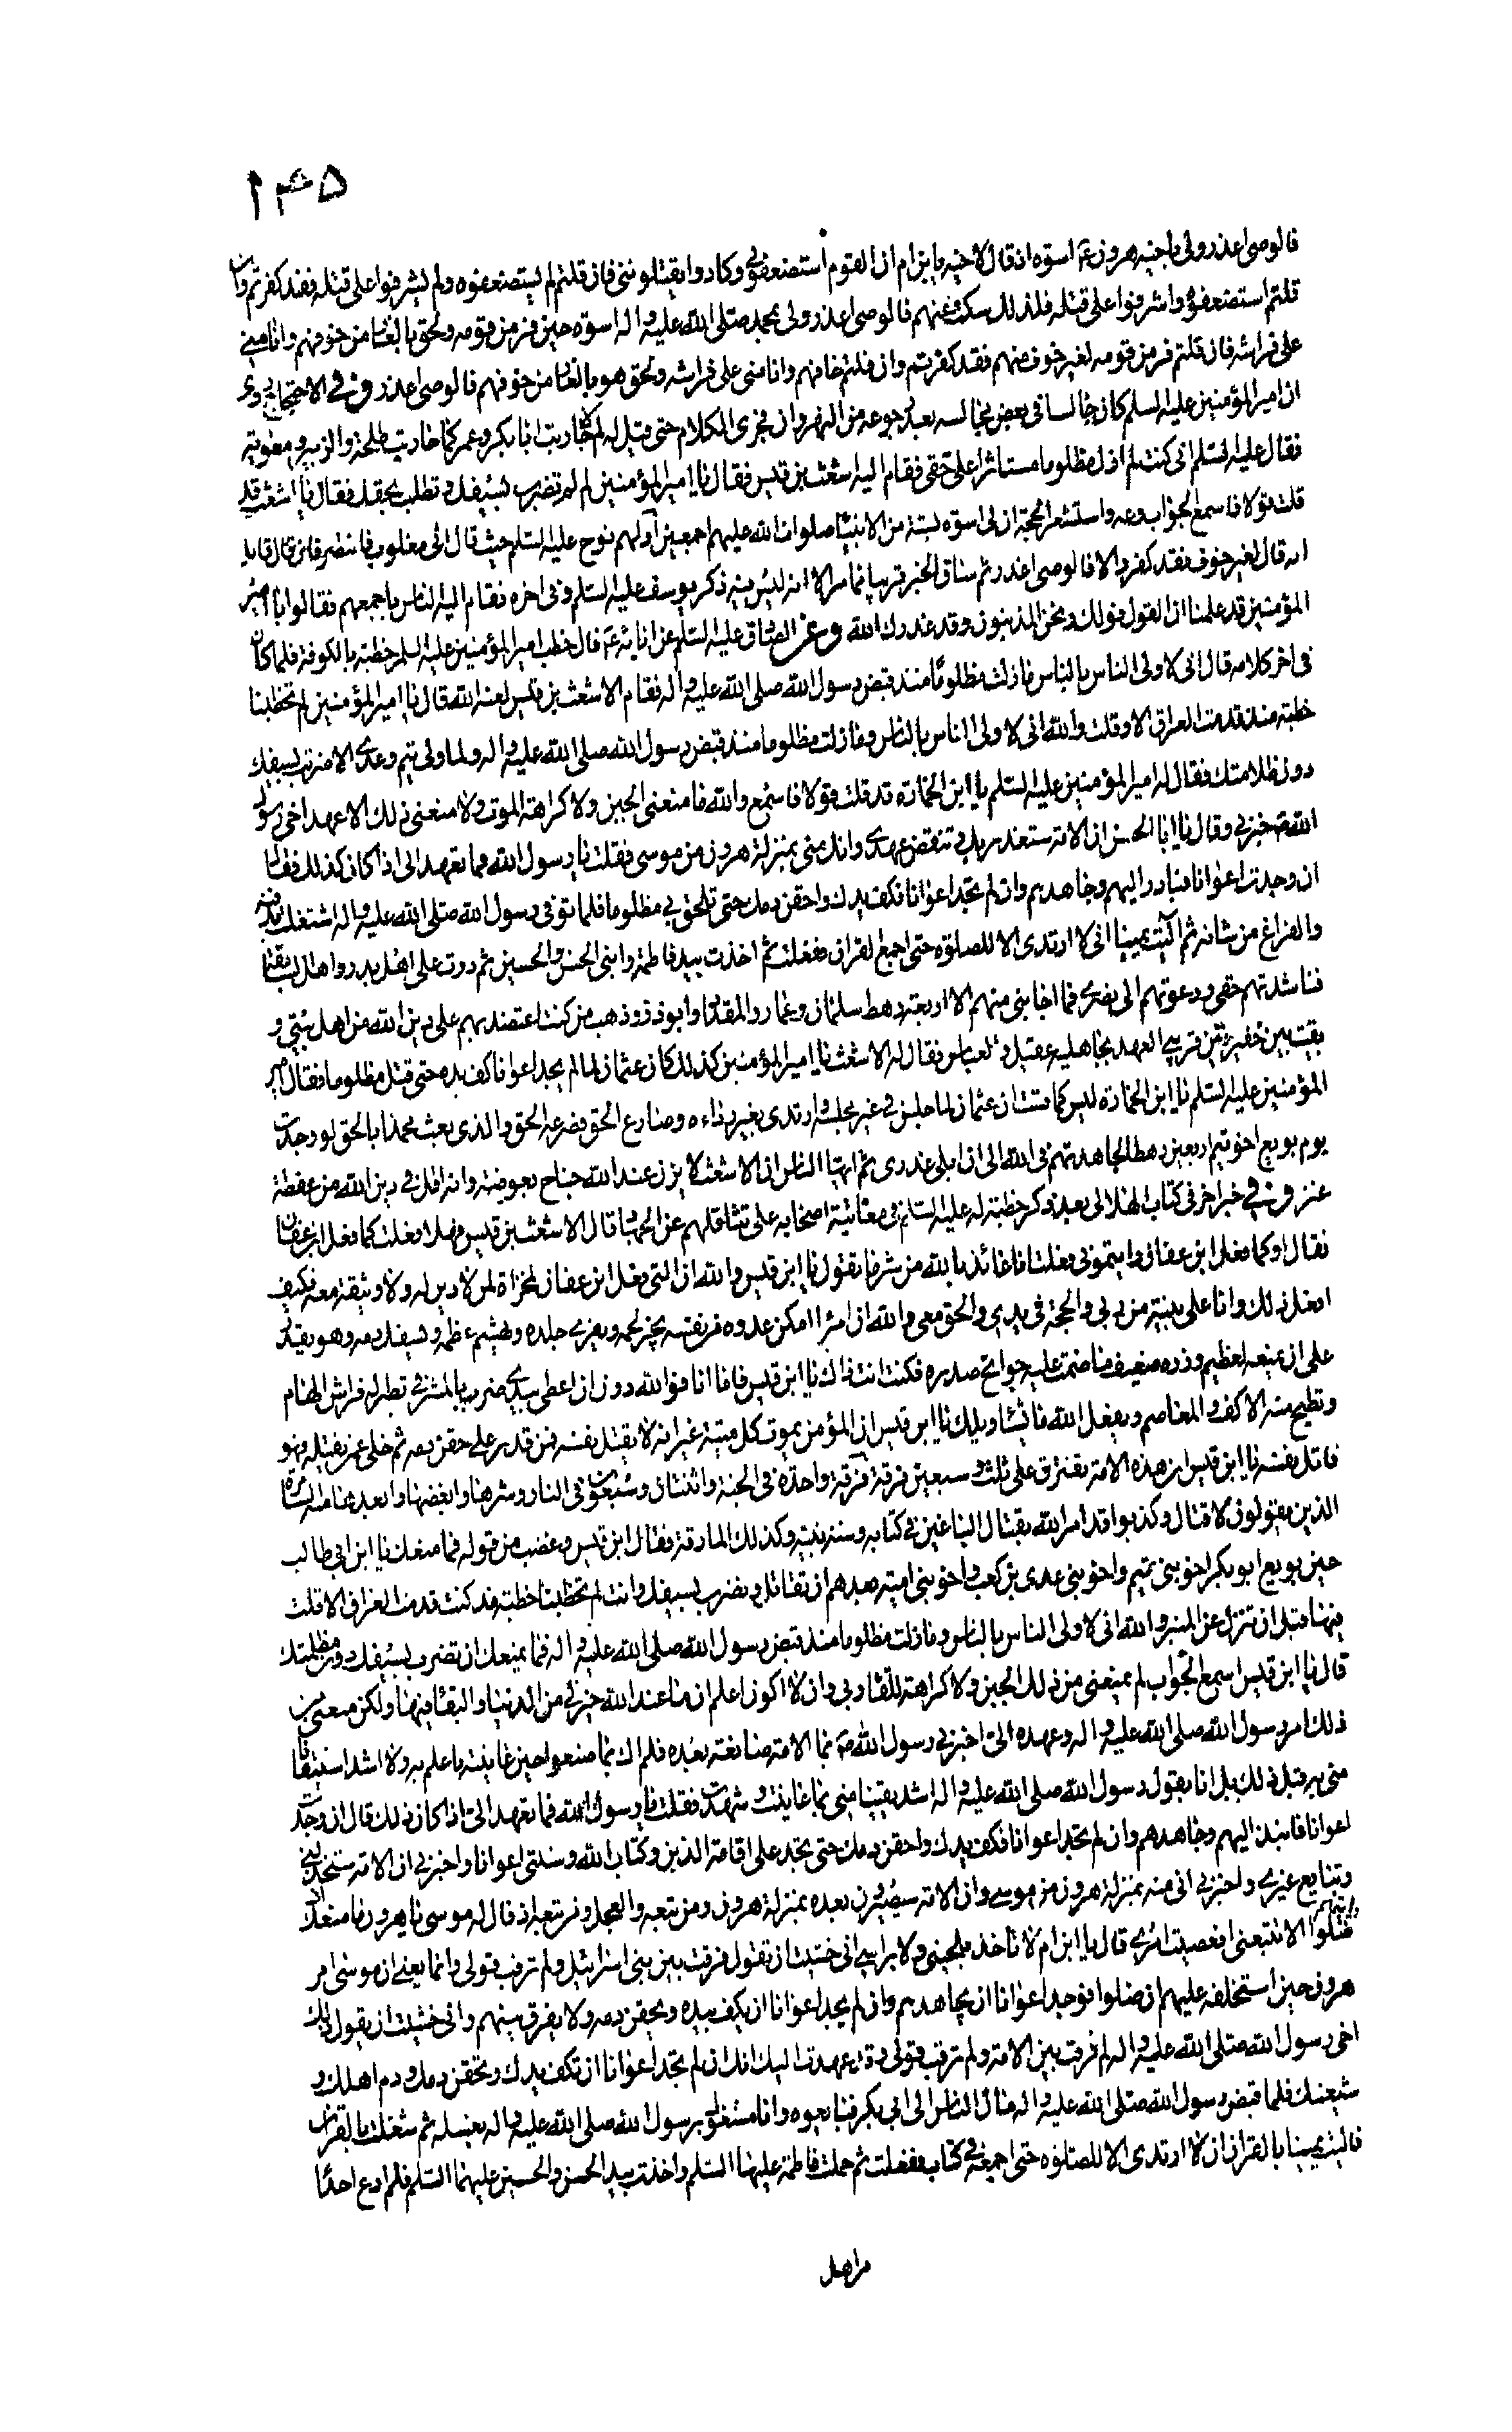 ۱۴۵
فالوصي اعذر ولي باخيه هرون ع اسوة اذ قال لاخيه يابن ام ان القوم استضعفوني وكادوا يقتلونني فان قلتم لم يستضعفوه ولم يشرفوا على قتله فقد كفرتم وان
قلتم استضعفوه واشرفوا على قتله فلذلك سكت عنهم فالوصي اعذر ولي بمحمد صلى الله عليه واله اسوة حين فر من قومه ولحق بالغار من خوفهم وانامني
على فراشه فان قلتم فر من قومه لغير خوف منهم فقد كفرتم وان قلتم خافهم وانامني على فراشه ولحق هو بالغار من خوفهم فالوصي اعذر وفي الاحتجاج روى
ان امير المؤمنين عليه السلم كان جالسا في بعض مجالسه بعد رجوعه من النهروان فجرى الكلام حتى قيل له لم لا حاربت ابا بكر وعمر كما حاربت طلحة والزبير ومعوية
فقال عليه السلم اني كنت لم ازل مظلوما مستاثرا على حقي فقام اليه اشعث بن قيس فقال يا امير المؤمنين لم لم تضرب بسيفك وتطلب بحقك فقال يا اشعث قد
قلت قولا فاسمع الجواب وعه واستشعر الحجة ان لي اسوة بستة من الانبياء صلوات الله عليهم اجمعين اولهم نوح عليه السلم حيث قال اني مغلوب فانتصر فان قال قايل
انه قال لغير خوف فقد كفر والا فالوصي اعذر ثم ساق الخبر قريبا مما مر الا انه ليس فيه ذكر يوسف عليه السلم وفي اخره فقام اليه الناس باجمعهم فقالوا يا امير
المؤمنين قد علمنا ان القول قولك ونحن المذنبون وقد عذرك الله وعن الصادق عليه السلم عن ابائه ع قال خطب امير المؤمنين عليه السلم خطبة بالكوفة فلما كان
في اخر كلامه قال اني لاولى الناس بالناس ما زلت مظلوما منذ قبض رسول الله صلى الله عليه واله فقام الاشعث بن قيس لعنه الله قال يا امير المؤمنين لم تخطبنا
خطبة منذ قدمت العراق الا وقلت والله اني لاولى الناس بالناس وما زلت مظلوما منذ قبض رسول الله صلى الله عليه واله ولما ولي تيم وعدي الا ضربت بسيفك
دون ظلامتك فقال له امير المؤمنين عليه السلم يا ابن الخمارة قد قلت قولا فاسمع والله ما منعني الجبن ولا كراهة الموت ولا منعني ذلك الا عهد اخي رسول
الله ص خبرني وقال يا ابا الحسن ان الامة ستغدر بك وتنقض عهدي وانك مني بمنزلة هرون من موسى فقلت يا رسول الله فما تعهد الي اذا كان كذلك فقال
ان وجدت اعوانا فبادر اليهم وجاهدهم وان لم تجد اعوانا فكف يدك واحقن دمك حتى تلحق بي مظلوما فلما توفي رسول الله صلى الله عليه واله اشتغلت بدفنه
والفراغ من شانه ثم اليت يمينا اني لا ارتدي الا للصلوة حتى اجمع القران ففعلت ثم اخذت بيد فاطمة وابني الحسن والحسين ثم درت على اهل بدر واهل السابقة
فناشدتهم حقي ودعوتهم الى نصرتي فما اجابني منهم الا اربعة رهط سلمان وعمار والمقداد وابو ذر وذهب من كنت اعتضد بهم على دين الله من اهل بيتي و
بقيت بين خفيرتين قريبي العهد بجاهلية عقيل والعباس فقال له الاشعث يا امير المؤمنين كذلك كان عثمان لما لم يجد اعوانا كف يده حتى قتل مظلوما فقال امير
المؤمنين عليه السلم يا ابن الخمارة ليس كما قست ان عثمان لما جلس في غير مجلسه وارتدى بغير رداءه وصارع الحق فصرعه الحق والذي بعث محمدا بالحق لو وجدت
يوم بويع اخو تيم اربعين رهطا لجاهدتهم في الله الى ان ابلي عذري ثم ايها الناس ان الاشعث لا يزن عند الله جناح بعوضة وانه اقل في دين الله من عفطة
عنز وفي خبر اخر في كتاب الهلالي بعد ذكر خطبة له عليه السلم في معاتبة اصحابه على تثاقلهم عن الجهاد قال الاشعث بن قيس فهلا فعلت كما فعل ابن عفان
فقال اوكما فعل ابن عفان رايتموني فعلت انا عائذ بالله من شر ما تقول يا ابن قيس والله ان التي فعل ابن عفان لمخزاة لمن لا دين له ولا وثيقة معه فكيف
افعل ذلك وانا على بينة من ربي والحجة في يدي والحق معي والله ان امرا امكن عدوه من نفسه يجز لحمه ويفري جلده ويهشم عظمه ويسفك دمه وهو يقدر
على ان يمنعه لعظيم وزره ضعيف ما ضمت عليه جوانح صدره فكنت انت ذاك يا ابن قيس فاما انا فوالله دون ان اعطي بيدي ضرب بالمشرفي تطير له فراش الهام
وتطيح منه الاكف والمعاصم ويفعل الله ما يشاء ويلك يا ابن قيس ان المؤمن يموت كل ميتة غير انه لا يقتل نفسه فمن قدر على حقن دمه ثم خلى عمن يقتله فهو
قاتل نفسه يا ابن قيس ان هذه الامة تفترق على ثلث وسبعين فرقة فرقة واحدة في الجنة واثنتان وسبعون في النار وشرها وابغضها وابعدها منه السامرة
الذين يقولون لا قتال وكذبوا قد امر الله بقتال الباغين في كتابه وسنة نبيه وكذلك المارقة فقال ابن قيس وغضب من قوله فما منعك يا ابن ابي طالب
حين بويع ابو بكر اخو بني تيم واخو بني عدي بن كعب واخو بني امية بعدهم ان تقاتل وتضرب بسيفك وانت لم تخطبنا خطبة مذ كنت قدمت العراق الا قلت
فيها قبل ان تنزل عن المنبر والله اني لاولى الناس بالناس وما زلت مظلوما منذ قبض رسول الله صلى الله عليه واله فما يمنعك ان تضرب بسيفك دون مظلمتك
قال يا ابن قيس اسمع الجواب لم يمنعني من ذلك الجبن ولا كراهة للقاء ربي وان لا اكون اعلم ان ما عند الله خير لي من الدنيا والبقاء فيها ولكن منعني من
ذلك امر رسول الله صلى الله عليه واله وعهده الي اخبرني رسول الله ص بما الامة صانعة بعده فلم اك بما صنعوا حين عاينته باعلم به ولا اشد استيقانا
مني به قبل ذلك بل انا بقول رسول الله صلى الله عليه واله اشد يقينا مني بما عاينت وشهدت فقلت يا رسول الله فما تعهد الي اذا كان ذلك قال ان وجدت
اعوانا فانبذ اليهم وجاهدهم وان لم تجد اعوانا فكف يدك واحقن دمك حتى تجد على اقامة الدين وكتاب الله وسنتي اعوانا واخبرني ان الامة ستخذلني
وتبايع غيري واخبرني اني منه بمنزلة هرون من موسى وان الامة سيصيرون بعده بمنزلة هرون ومن تبعه والعجل ومن تبعه اذ قال له موسى يا هرون ما منعك اذ
رايتهم ضلوا الا تتبعني افعصيت امري قال يا ابن ام لا تاخذ بلحيتي ولا براسي اني خشيت ان تقول فرقت بين بني اسرائيل ولم ترقب قولي وانما يعني ان موسى امر
هرون حين استخلفه عليهم ان ضلوا فوجد اعوانا ان يجاهدهم وان لم يجد اعوانا ان يكف يده ويحقن دمه ولا يفرق بينهم واني خشيت ان يقول ذلك
اخي رسول الله صلى الله عليه واله لم فرقت بين الامة ولم ترقب قولي وقد عهدت اليك انك ان لم تجد اعوانا ان تكف يدك وتحقن دمك ودم اهلك و
شيعتك فلما قبض رسول الله صلى الله عليه واله مال الناس الى ابي بكر فبايعوه وانا مشغول برسول الله صلى الله عليه واله بغسله ثم شغلت بالقران
فاليت يمينا بالقران ان لا ارتدي الا للصلوة حتى اجمعه في كتاب ففعلت ثم حملت فاطمة عليها السلم واخذت بيد الحسن والحسين عليهما السلم فلم ادع احدا
من اهل